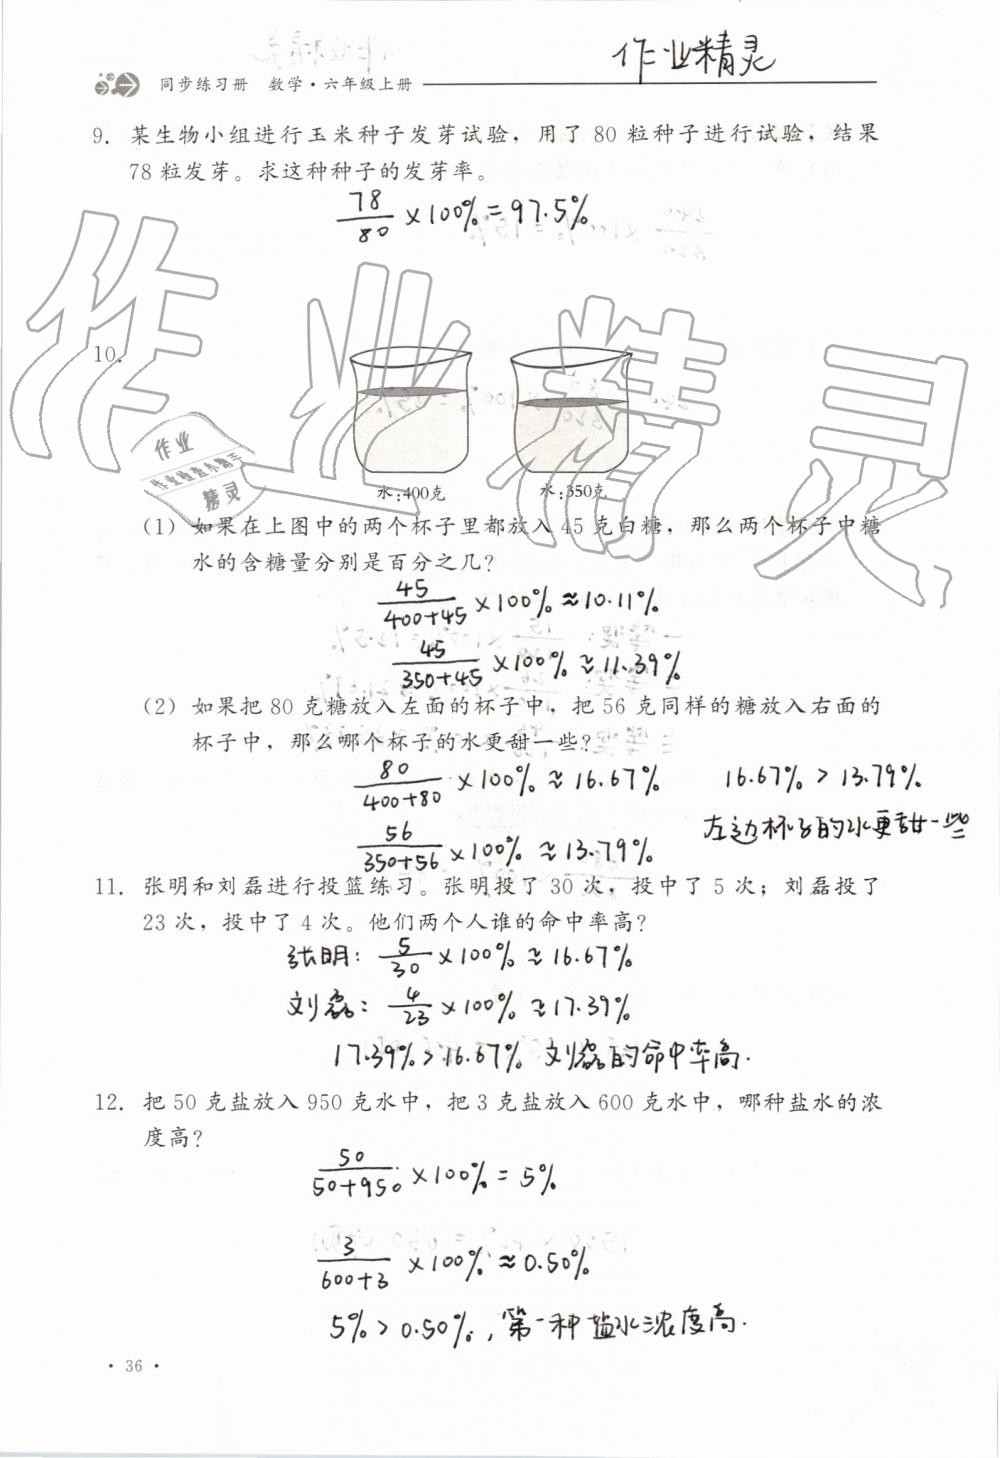 作业精灵
同步练习册 数学·六年级上册
9. 某生物小组进行玉米种子发芽试验，用了 80 粒种子进行试验，结果
78 粒发芽。求这种种子的发芽率。
78/80 ×100%=97.5%
10.
作业精灵
作业
作业检查小助手
精灵
水:400克 水:350克
(1) 如果在上图中的两个杯子里都放入 45 克白糖，那么两个杯子中糖
水的含糖量分别是百分之几?
45/400+45 ×100%≈10.11%
45/350+45 ×100%≈11.39%
(2) 如果把 80 克糖放入左面的杯子中，把 56 克同样的糖放入右面的
杯子中，那么哪个杯子的水更甜一些?
80/400+80 ×100%≈16.67% 16.67%>13.79%
56/350+56 ×100%≈13.79% 左边杯子的水更甜一些
11. 张明和刘磊进行投篮练习。张明投了 30 次，投中了 5 次；刘磊投了
23 次，投中了 4 次。他们两个人谁的命中率高?
张明: 5/30 ×100%≈16.67%
刘磊: 4/23 ×100%≈17.39%
17.39%>16.67% 刘磊的命中率高.
12. 把 50 克盐放入 950 克水中，把 3 克盐放入 600 克水中，哪种盐水的浓
度高?
50/50+950 ×100%=5%
3/600+3 ×100%≈0.50%
5%>0.50%,第一种盐水浓度高.
· 36 ·